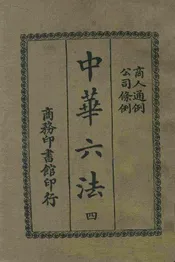 商人通例
公司條例
中華六法 四
商務印書館印行